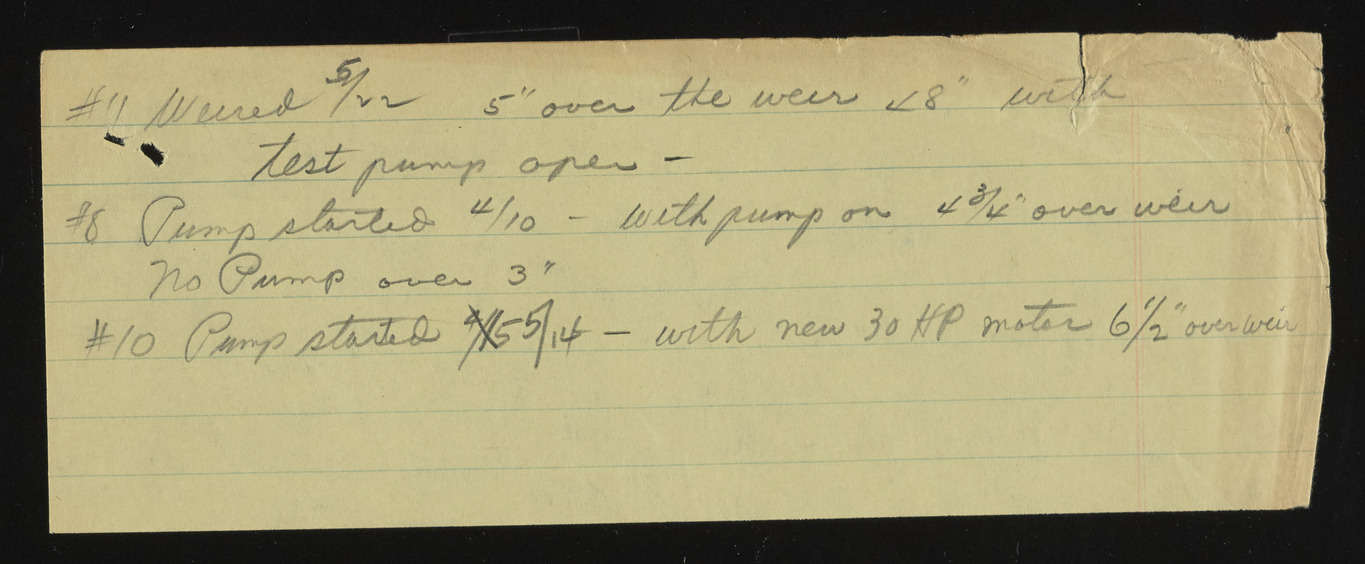 #11 Weired 5/22 5" over the weir 48" with
test pump open -
#8 Pump started 4/10 - with pump on 4 3/4" over weir
No Pump over 3"
#10 Pump started 5/14 - with new 30 HP motor 6 1/2" over weir